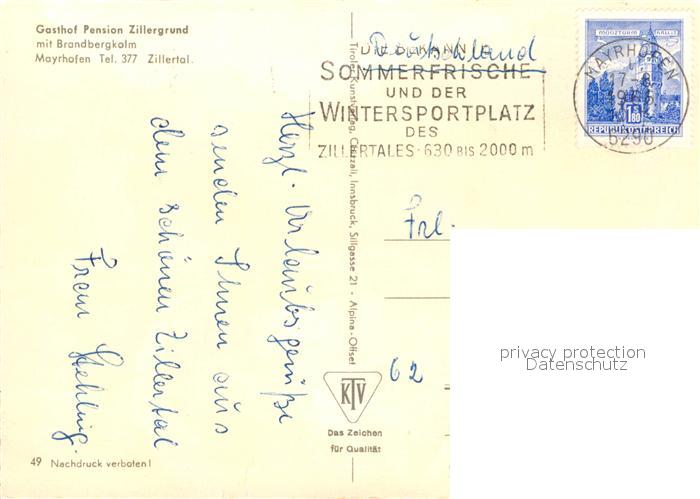 Gasthof Pension Zillergrund
mit Brandbergkolm
Mayrhofen Tel. 377 Zillertal.
Herzl. Urlaubsgrüße
senden Ihnen aus
dem schönen Zillertal
Fram Stehling.
49 Nachdruck verboten!
Tiroler Kunstverlag, Chizzali, Innsbruck, Sillgasse 21 - Alpina-Offset
KTV
Das Zeichen
für Qualität
Deutschland
DIE BEKANNTE
SOMMERFRISCHE
UND DER
WINTERSPORTPLATZ
DES
ZILLERTALES · 630 BIS 2000 m
MÜNZTURM HALL i. T.
1.80
REPUBLIK ÖSTERREICH
MAYRHOFEN
6290
Frl.
62
privacy protection
Datenschutz